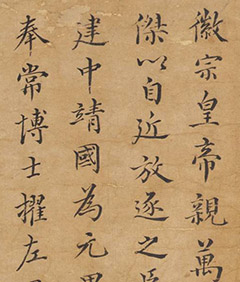 徽宗皇帝親萬
傑以自近放逐之臣
建中靖國為元
奉常博士擢左